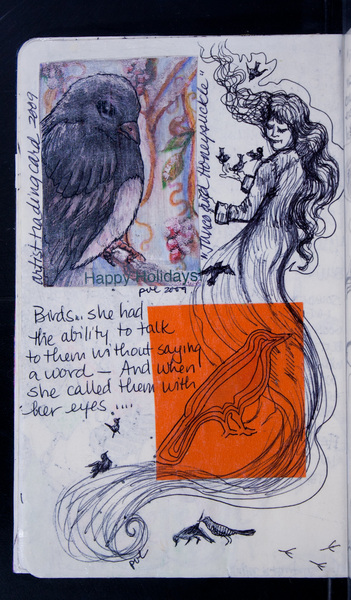 artist trading card 2009
"Juncos and Honeysuckle"
Happy Holidays!
PVL 2009
Birds... she had
the ability to talk
to them without saying
a word — And when
she called them with
her eyes ....
PVL